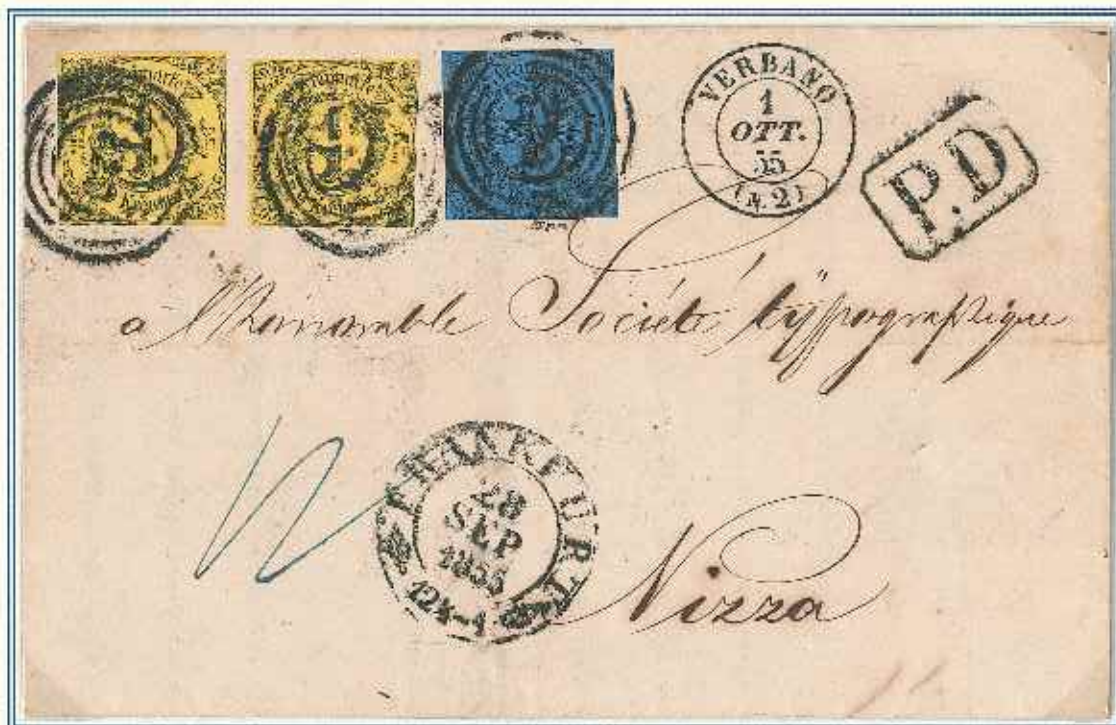 VERBANO
1
OTT.
55
(4.2)
P.D
à l'honorable Société typpographique
FRANKFURT
28
SEP
1855
12½-1
Nizza